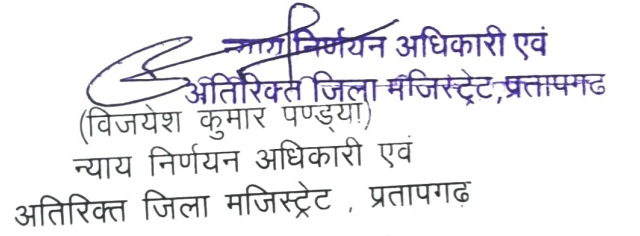 न्याय निर्णयन अधिकारी एवं
अतिरिक्त जिला मजिस्ट्रेट,प्रतापगढ
(विजयेश कुमार पण्ड्या)
न्याय निर्णयन अधिकारी एवं
अतिरिक्त जिला मजिस्ट्रेट , प्रतापगढ़